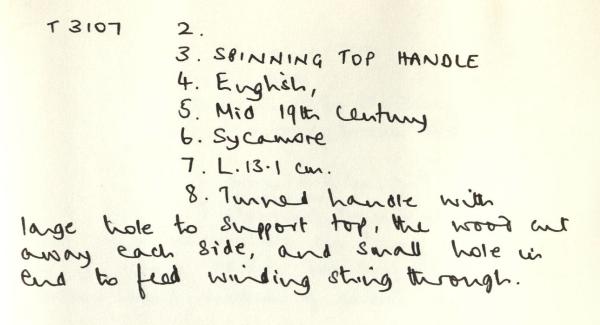 T 3107 2.
3. SPINNING TOP HANDLE
4. English,
5. Mid 19th Century
6. Sycamore
7. L.13.1 cm.
8. Turned handle with
large hole to support top, the wood cut
away each side, and small hole in
end to feed winding string through.